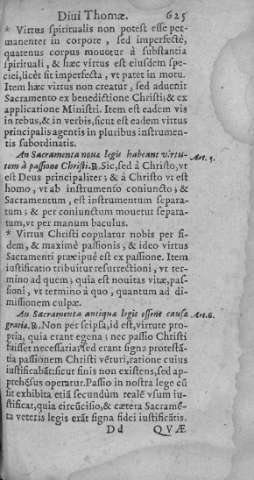 Diui Thomæ. 625
* Virtus spiritualis non potest esse per-
manenter in corpore, sed imperfectè,
quatenus corpus mouetur à substantia
spirituali, & hæc virtus est eiusdem spe-
ciei, licèt sit imperfecta, vt patet in motu.
Item hæc virtus non creatur, sed aduenit
Sacramento ex benedictione Christi; & ex
applicatione Ministri. Item est eadem vis
in rebus, & in verbis, sicut est eadem virtus
principalis agentis in pluribus instrumen-
tis subordinatis.
An Sacramenta nouæ legis habeant virtu-
tem à passione Christi? R. Sic, sed à Christo, vt Art. 5.
est Deus principaliter; & à Christo vt est
homo, vt ab instrumento coniuncto; &
Sacramentum, est instrumentum separa-
tum; & per coniunctum mouetur separa-
tum, vt per manum baculus.
* Virtus Christi copulatur nobis per fi-
dem, & maximè passionis, & ideo virtus
Sacramenti præcipuè est ex passione. Item
iustificatio tribuitur resurrectioni, vt ter-
mino ad quem; quia est nouitas vitæ, passi-
oni, vt termino à quo, quantum ad di-
missionem culpæ.
An Sacramenta antiquæ legis essent causa Art. 6.
gratiæ. R. Non per seipsa, id est, virtute pro-
pria, quia erant egena; nec passio Christi
fuisset necessaria; sed erant signa protestã-
tia passionem Christi vẽturi, ratione cuius
iustificabãt: sicut finis non existens, sed ap-
prehẽsus operatur. Passio in nostra lege cũ
sit exhibita etiã secundùm realẽ vsum iu-
stificat, quia circũcisio, & cætera Sacramẽ-
ta veteris legis erãt signa fidei iustificãtis.
D d QVÆ